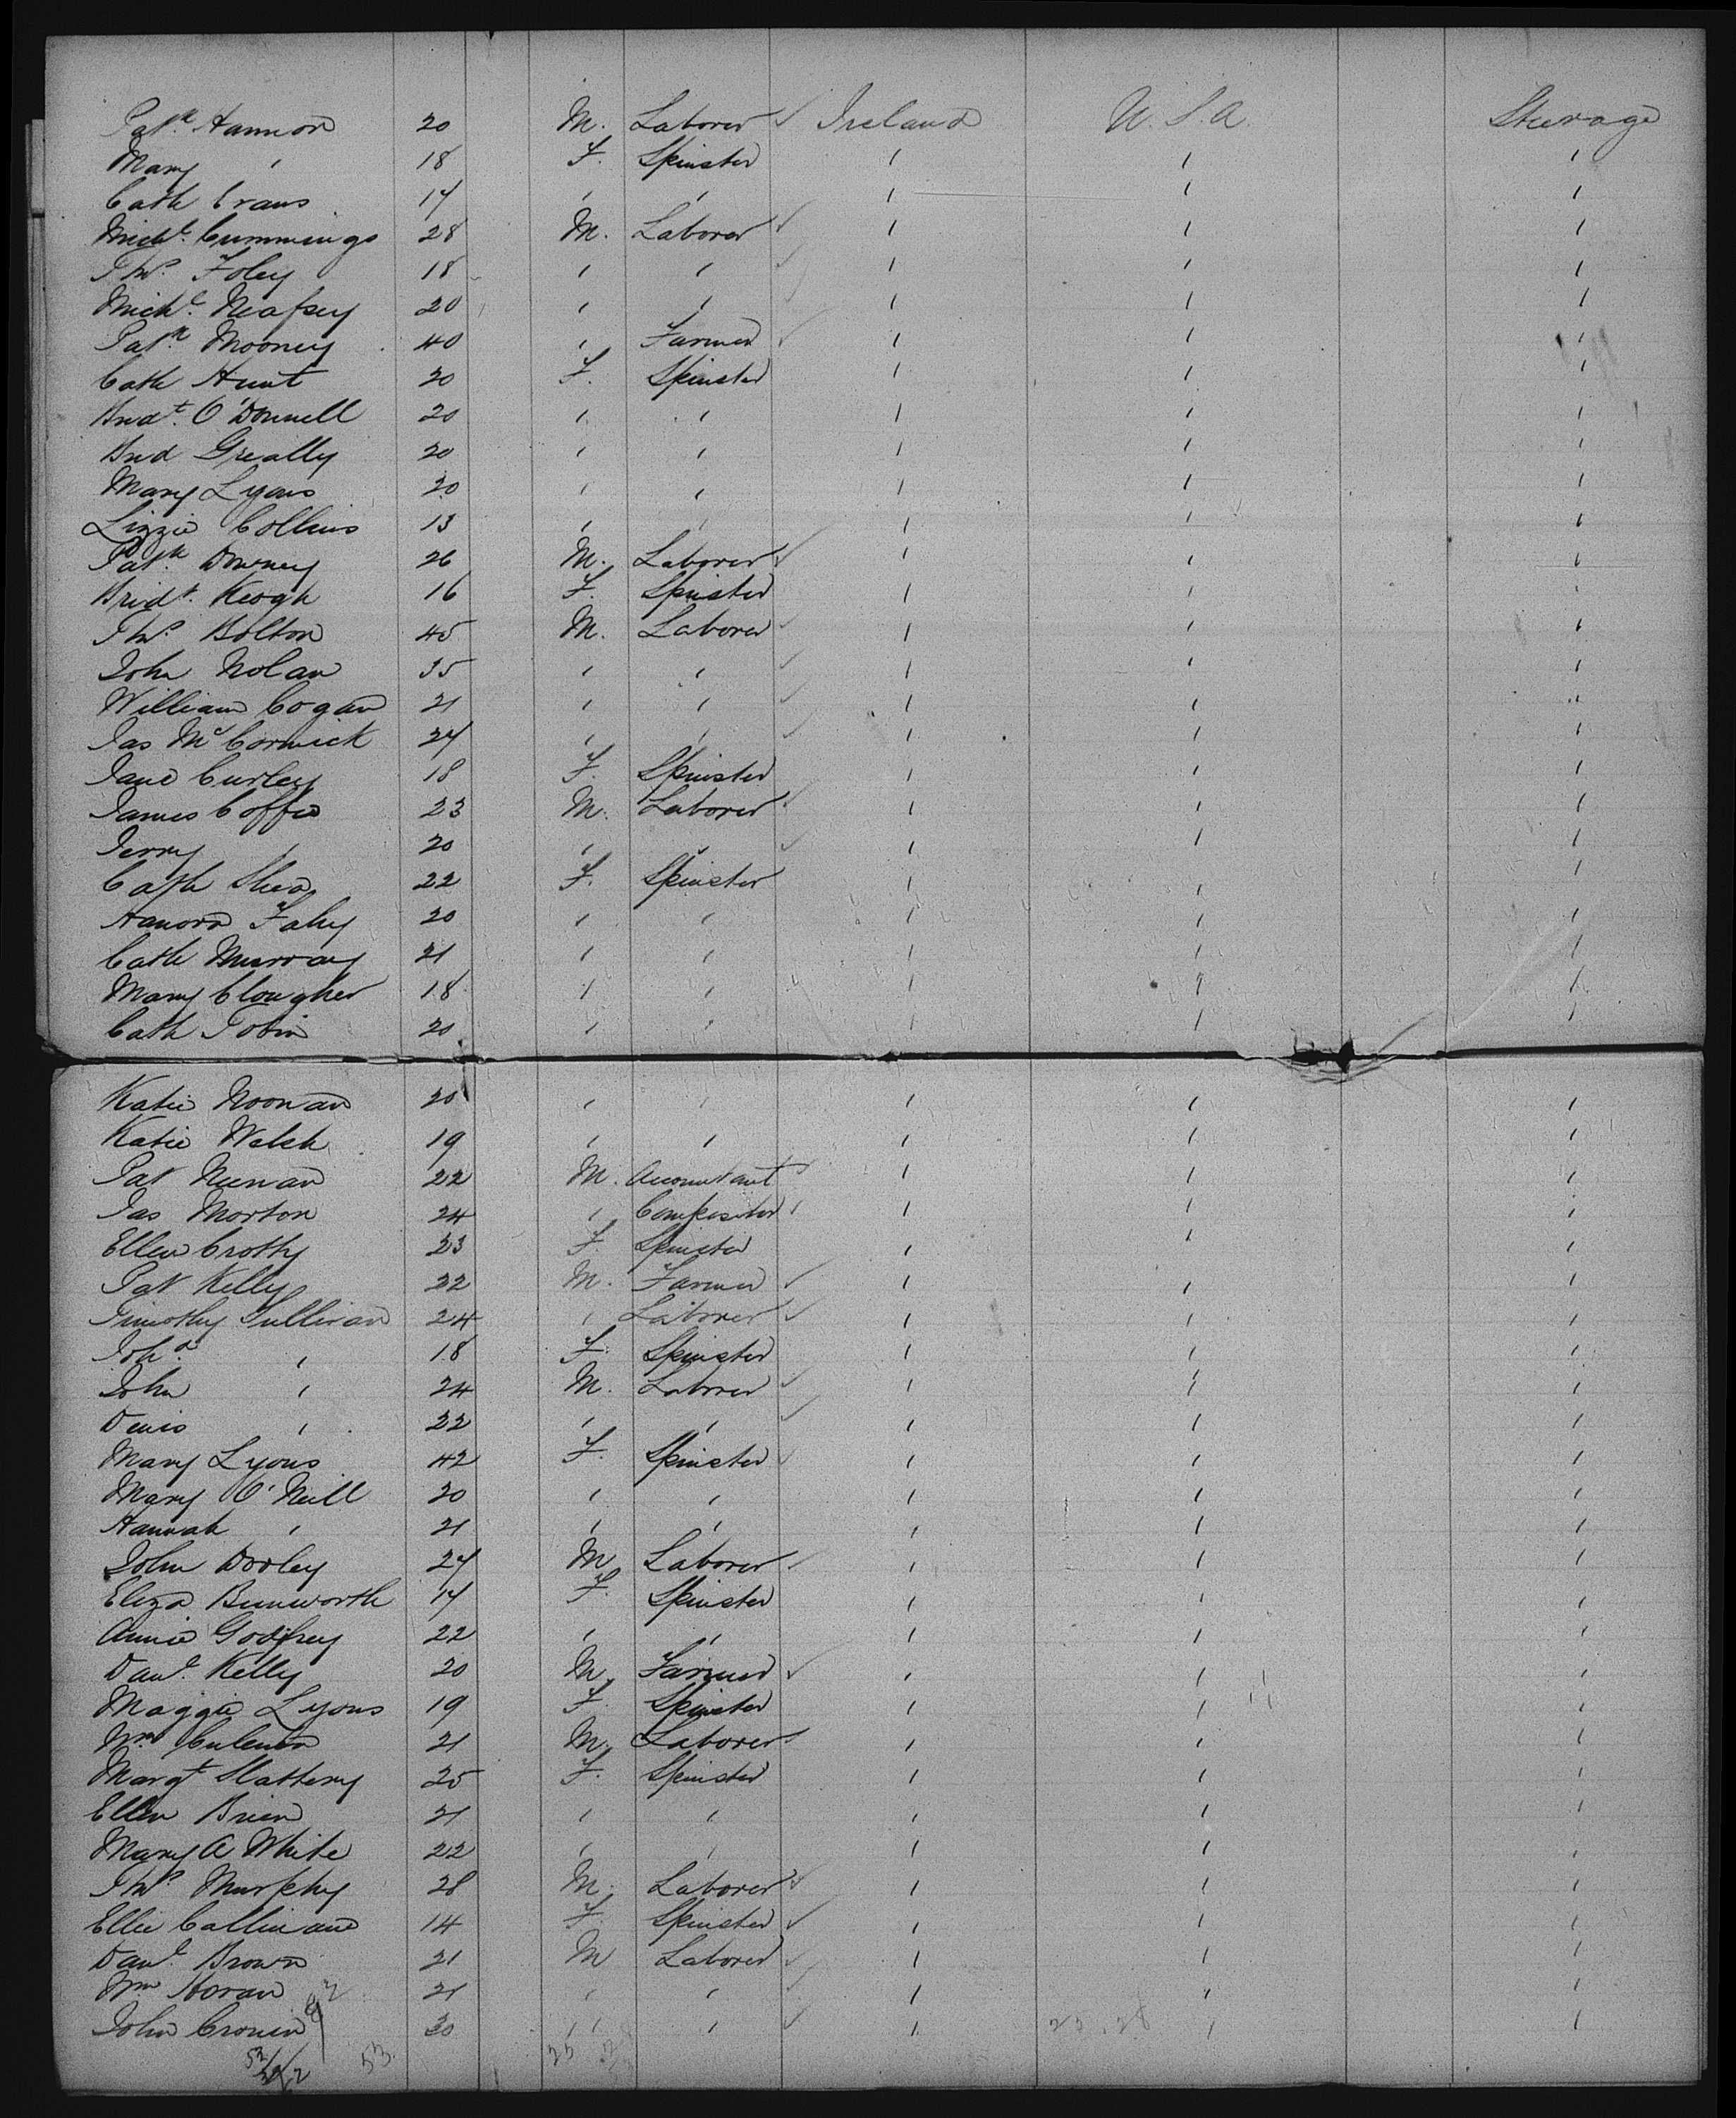 Patk Hannon 20 M. Laborer ✓ Ireland U.S.A. Steerage
Mary " 18 F. Spinster " " "
Cath Evans 17 " " " " "
Michl. Cummings 28 M. Laborer ✓ " " "
Thos. Foley 18 " " ✓ " " "
Michl. Neafsey 20 " " ✓ " " "
Patk. Mooney 40 " Farmer ✓ " " "
Cath Hunt 20 F. Spinster " " "
Bridt. O'Donnell 20 " " " " "
Brid Greally 20 " " " " "
Mary Lyons 20 " " " " "
Lizzie Collins 13 " " " " "
Patk. Downey 26 M. Laborer ✓ " " "
Bridt. Keogh 16 F. Spinster " " "
Thos. Bolton 45 M. Laborer ✓ " " "
John Nolan 35 " " ✓ " " "
William Cogan 21 " " ✓ " " "
Jas McCormick 27 " " ✓ " " "
Jane Curley 18 F. Spinster " " "
James Coffee 23 M. Laborer ✓ " " "
Jerry " 20 " " ✓ " " "
Cath Shea 22 F. Spinster " " "
Hanora Fahy 20 " " " " "
Cath Murray 21 " " " " "
Mary Clougher 18 " " " " "
Cath Tobin 20 " " " " "
Katie Noonan 20 " " " " "
Katie Walsh 19 " " " " "
Pat Neenan 22 M. Accountant ✓ " " "
Jas Morton 24 " Compositor " " "
Ellen Crotty 23 F. Spinster " " "
Pat Kelly 22 M. Farmer ✓ " " "
Timothy Sullivan 24 " Laborer ✓ " " "
Joha. " 18 F. Spinster " " "
John " 24 M. Laborer ✓ " " "
Denis " 22 " " ✓ " " "
Mary Lyons 42 F. Spinster ✓ " " "
Mary O'Neill 20 " " " " "
Hannah " 21 " " " " "
John Dooley 27 M Laborer ✓ " " "
Eliza Bunworth 17 F. Spinster " " "
Annie Godfrey 22 " " " " "
Danl. Kelly 20 M. Farmer ✓ " " "
Maggie Lyons 19 F. Spinster " " "
Wm 21 M. Laborer " " "
Margt Slattery 25 F. Spinster " " "
Ellen Brien 21 " " " " "
Mary A White 22 " " " " "
Thos Murphy 28 M. Laborer ✓ " " "
Ellie Callinane 14 F Spinster ✓ " " "
Danl. Brown 21 M Laborer ✓ " " "
Wm Horan 21 " " ✓ " " "
John Cronin 30 " " ✓ " " "
53 25